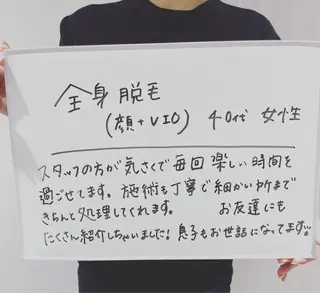 全身脱毛
(顔+VIO) 40代 女性
スタッフの方が気さくで毎回楽しい時間を
過ごせてます。施術も丁寧で細かい所まで
きちんと処理してくれます。 お友達にも
たくさん紹介しちゃいました!息子もお世話になってます!!